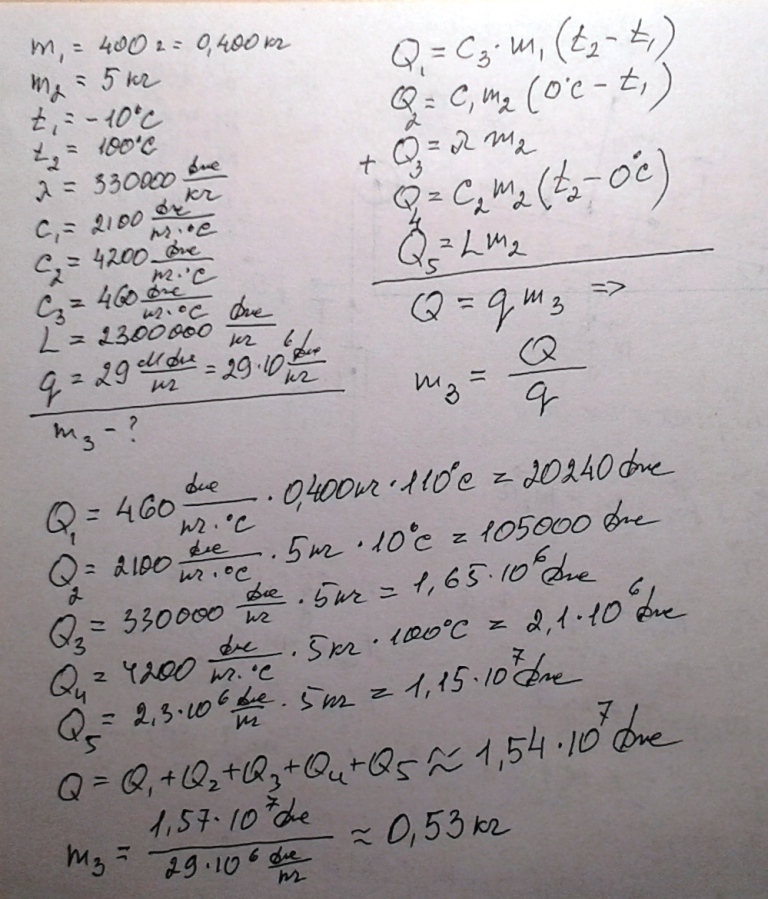 m₁ = 400 г = 0,400 кг
m₂ = 5 кг
t₁ = -10°C
t₂ = 100°C
λ = 330000 Дж/кг
C₁ = 2100 Дж/кг·°C
C₂ = 4200 Дж/кг·°C
C₃ = 460 Дж/кг·°C
L = 2300000 Дж/кг
q = 29 МДж/кг = 29·10⁶ Дж/кг
m₃ - ?
Q₁ = C₃·m₁(t₂-t₁)
Q₂ = C₁m₂(0°C-t₁)
+ Q₃ = λm₂
Q₄ = C₂m₂(t₂-0°C)
Q₅ = Lm₂
Q = qm₃ =>
m₃ = Q/q
Q₁ = 460 Дж/кг·°C · 0,400кг·110°C = 20240 Дж
Q₂ = 2100 Дж/кг·°C · 5кг · 10°C = 105000 Дж
Q₃ = 330000 Дж/кг · 5кг = 1,65·10⁶ Дж
Q₄ = 4200 Дж/кг·°C · 5кг · 100°C = 2,1·10⁶ Дж
Q₅ = 2,3·10⁶ Дж/кг · 5кг = 1,15·10⁷ Дж
Q = Q₁+Q₂+Q₃+Q₄+Q₅ ≈ 1,54·10⁷ Дж
m₃ = 1,57·10⁷ Дж / 29·10⁶ Дж/кг ≈ 0,53 кг